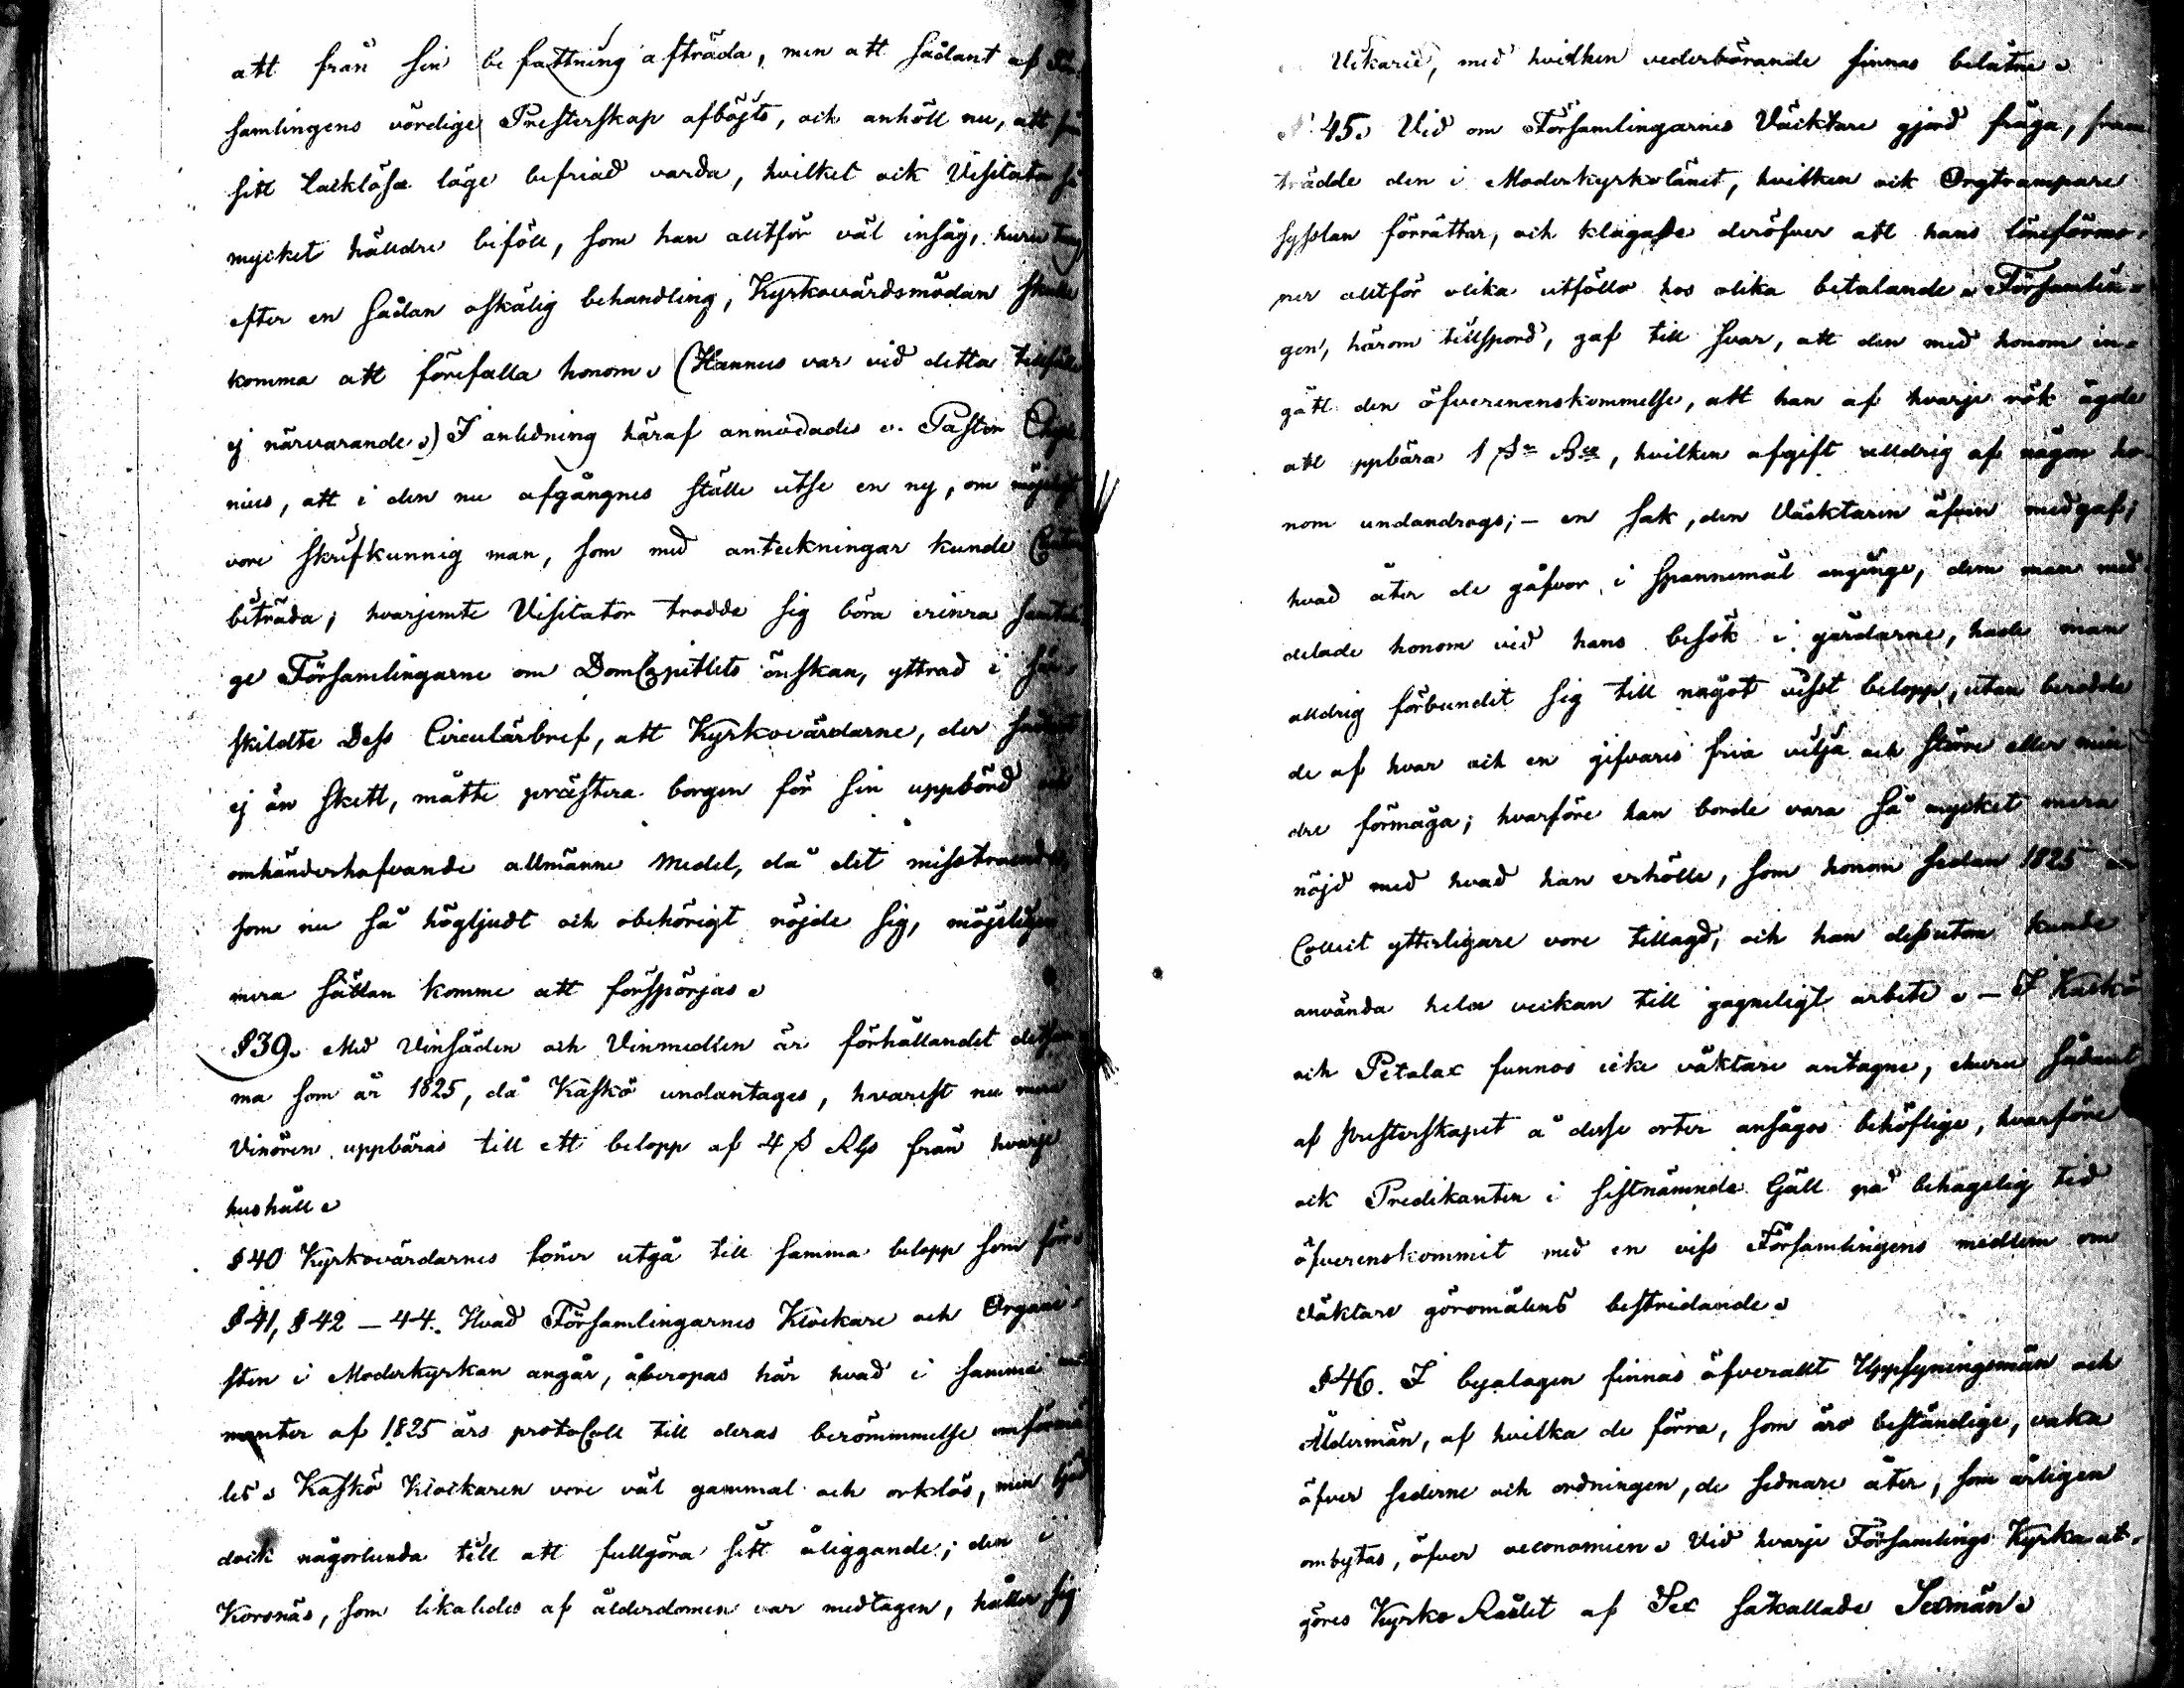 att från sin befattning afträda, men att sådant af För-
samlingens vördige Presterskap afböjts, och anhöll nu, att från
sitt tacklösa läge befriad varda, hvilket ock Visitator så
mycket hälldre biföll, som han alltför väl insåg, huru tung,
efter en sådan oskälig behandling, Kyrkovärdsmödan skulle
komma att förefalla honom. (Hannus var vid detta tillfälle
ej närvarande.) I anledning häraf anmodades v. Pastor
nius, att i den nu afgångnes ställe utse en ny, om möjeligt
vore skrifkunnig man, som med anteckningar kunde
biträda; hvarjemte Visitator trodde sig böra erinra samteli-
ge Församlingarne om DomCapitlets önskan, yttrad i sär-
skildte Dess Circulärbref, att Kyrkovärdarne, der sådant
ej än skett, måtte præstera borgen för sin uppbörd och
omhänderhafvande allmänne medel, då det misstroende,
som nu så högljudt och obehörigt röjde sig, möjeligen
mera sällan komme att förspörjas.
§39. Med Vinsäden och Vinmedlen är förhållandet detsam-
ma som år 1825, då Kaskö undantages, hvarest nu mera
Vinören uppbäras till ett belopp af 4 S Rgs från hvarje
hushåll.
§40 Kyrkovärdarnes löner utgå till samma belopp som förr.
§41, §42 – 44. Hvad Församlingarnes Klockare och Organi-
sten i Moderkyrkan angår, åberopas här hvad i samma mo-
menter af 1825 års protoColl till deras berömmmelse införmä-
les. Kaskö Klockaren vore väl gammal och orklös, men
dock någorlunda till att fullgöra sitt åliggande; den i
Korsnäs, som likaledes af ålderdomen var medtagen, håller sig
Vikarie, med hvilken vederbörande finnas belåtne.
§ 45. Vid om Församlingarnes Väcktare gjord fråga, fram-
trädde den i Moderkyrkolänet, hvilken ock Orgtrampare
sysslan förrättar, och klagade deröfver att hans löneförmo-
ner alltför olika utföllo hos olika betalande. Församlin-
gen, härom tillspord, gaf till svar, att den med honom in-
gått den öfverenenskommelse, att han af hvarje rök ägde
att ppbära 1 S, hvilken afgift alldrig af någon ho-
nom undandrogs; – en sak, den Väcktaren äfven medgaf;
hvad åter de gåfvor i Spannemål anginge, dem man med-
delade honom vid hans besök i gårdarne, hade man
alldrig förbundit sig till något visst belopp, utan berodde
de af hvar och en gifvares fria vilja och större eller min-
dre förmåga; hvarföre han borde vara så mycket mera
nöjd med hvad han erhölle, som honom sedan 1825 en
Collect ytterligare vore tillagd, och han dessutom kunde
använda hela veckan till gagneligt arbete. – I Kaskö
och Petalax funnos icke väktare antagne, ehuru sådant
af presterskapet å desse orter ansågos behöflige, hvarföre
ock Predikanten i sistnämnde Gäll på behagelig tid
öfverenskommit med en viss Församlingens medlem om
väktare göromålens bestridande.
§46. I byalagen finnas öfverallt Uppsyningsmän och
Åldermän, af hvilka de förra, som äro beständige, vaka
öfver sederne och ordningen, de sednare åter, som årligen
ombytas, öfver oeconomien. Vid hvarje Församlings Kyrka ut-
göres Kyrko Rådet af Sex såkallade Sexmän.